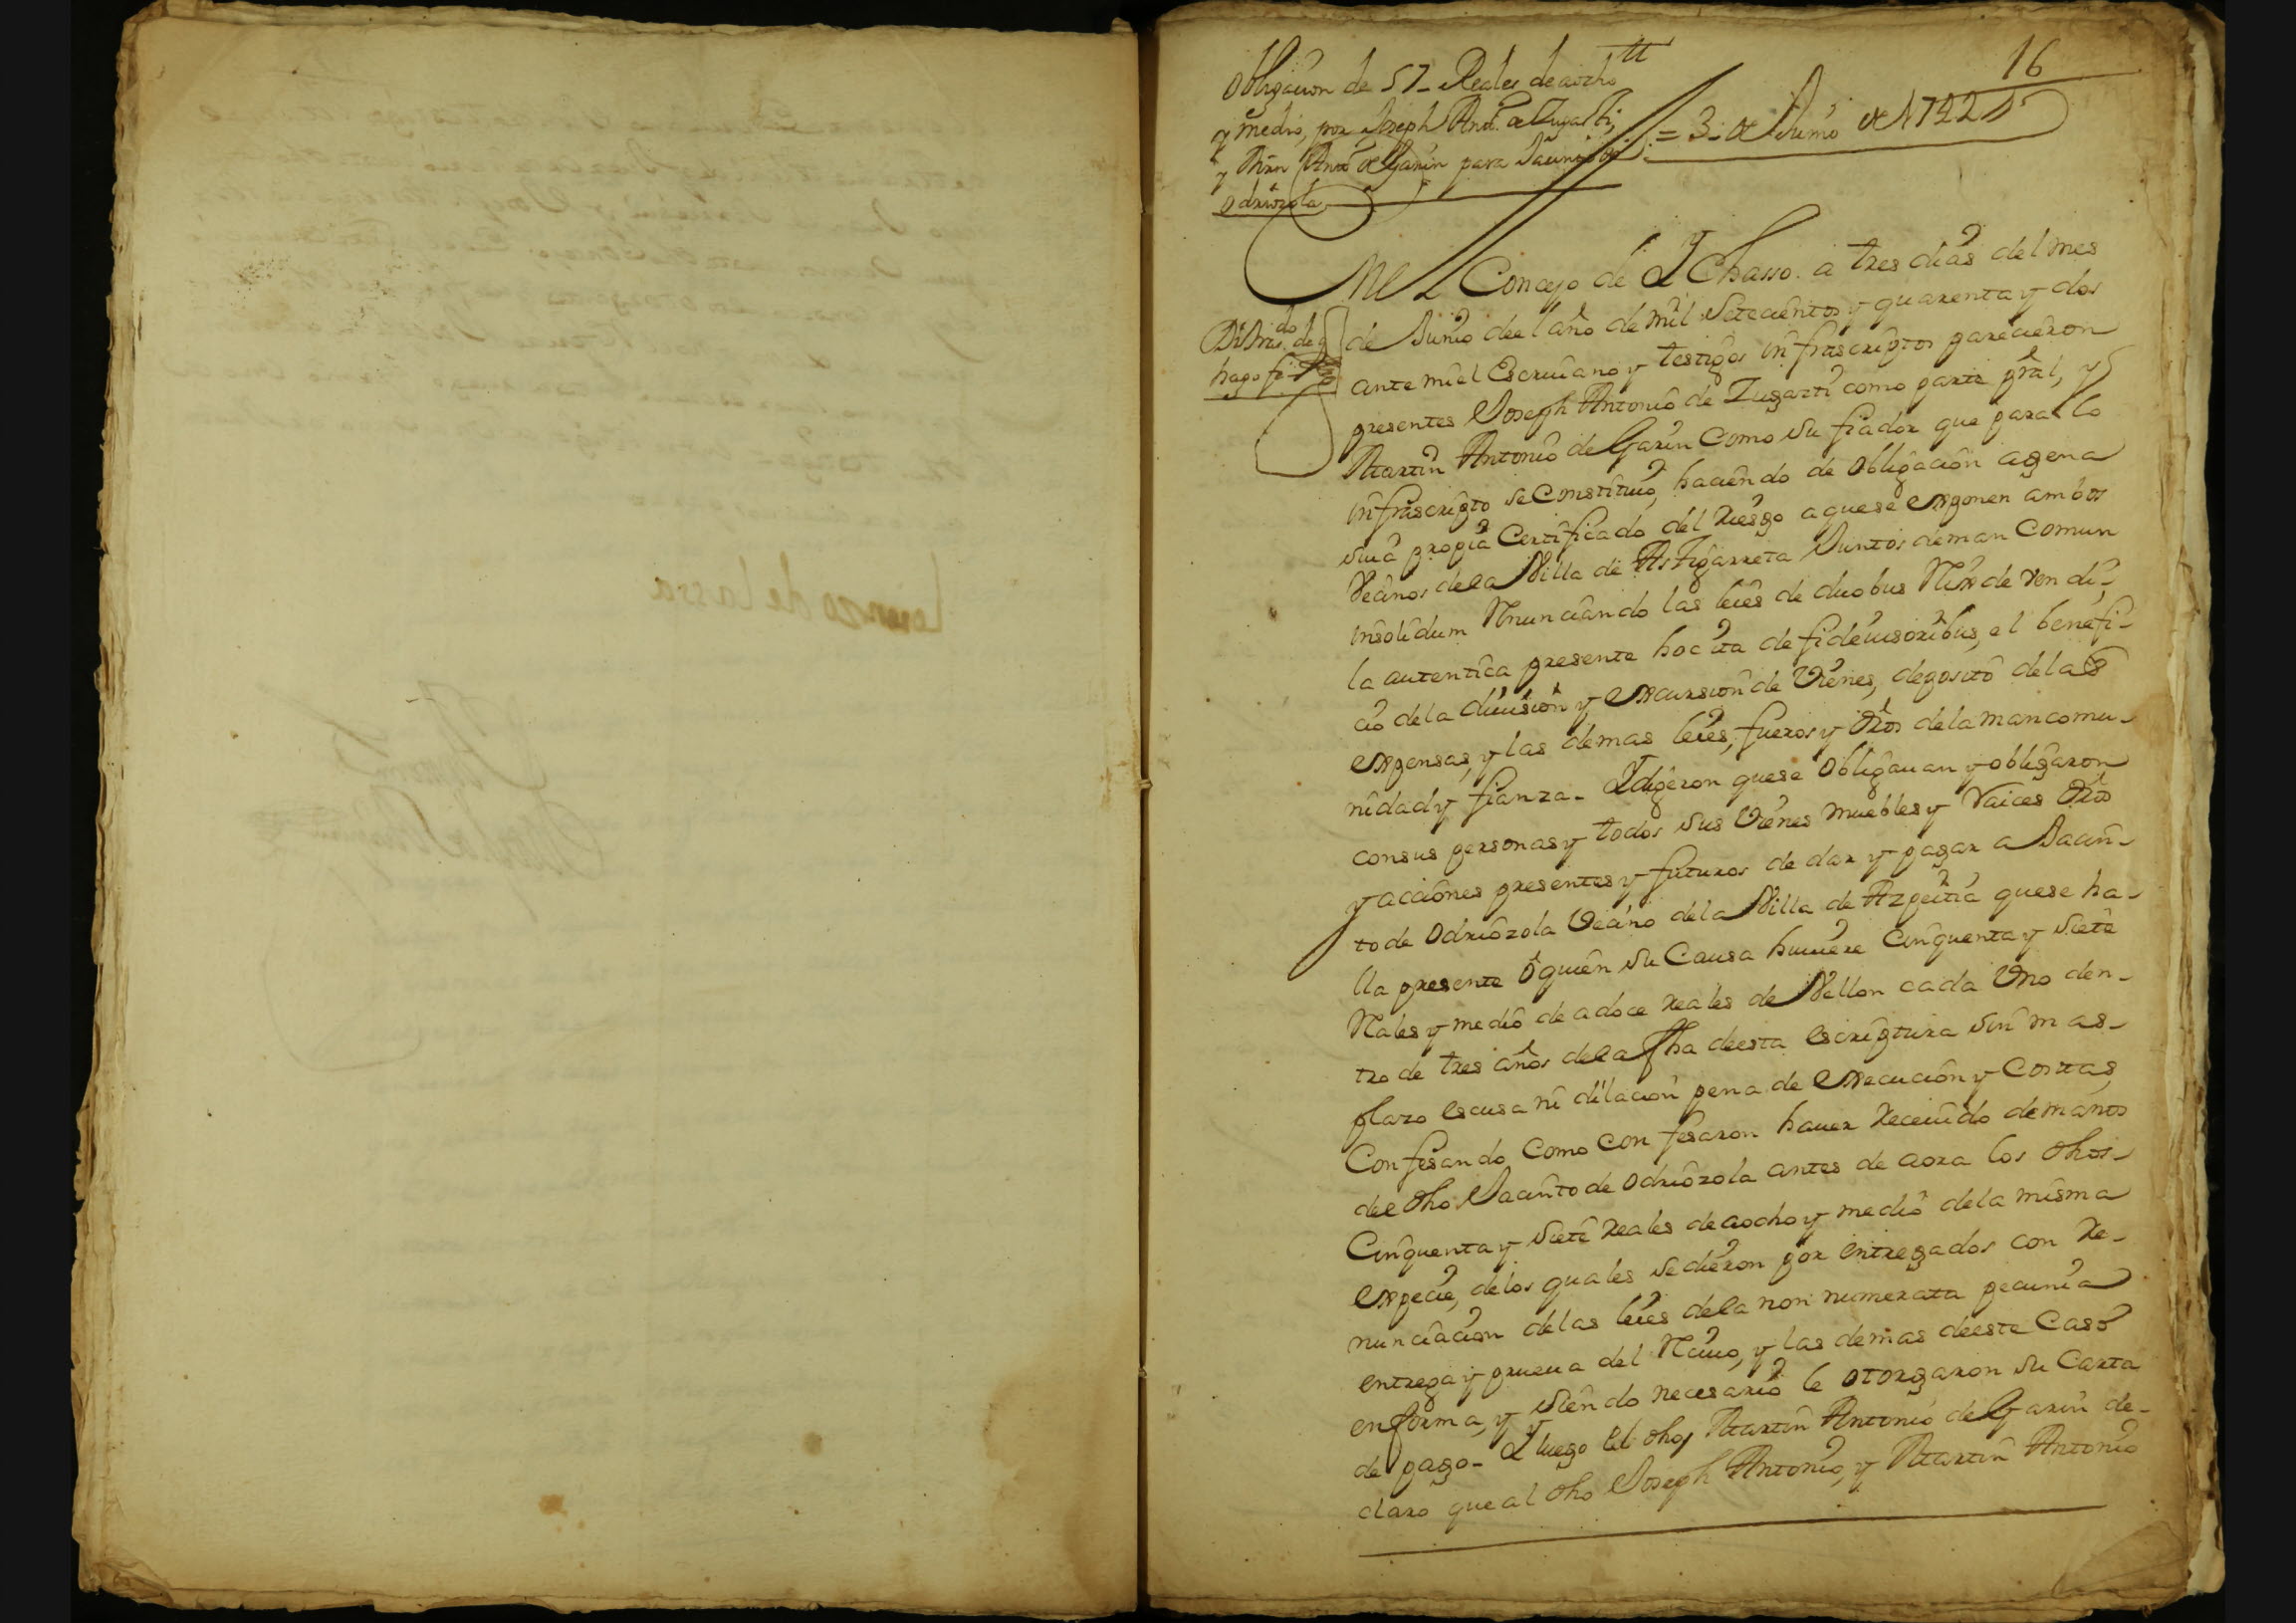 16
Obligacion de 57- Reales de aocho
y medio, por Joseph Antt.o de Zugasti,
y Mrn Anto de Garin para Jacinto de
Odriozola
= 3- de Junio de 1742
En el Concejo de Ychasso. a tres dias del mes
de Junio deel año de mil Setecientos y quarenta y dos
ante mi el Escriuano y testigos infrascriptos parecieron
presentes Joseph Antonio de Zugasti como parte pral, y
Martin Antonio de Garin Como su fiador que para lo
infrascripto se Constituio, haciendo de obligacion agena
suia propia Certificado del riesgo aquese exponen ambos
Vecinos dela Villa de Astigarreta Juntos deman Comun
insolidum Renunciando las leies de duobus Rex de vendi,
la autentica presente hoc ita de fideiusoribus, el benefi-
cio dela diuision y excursion de Vienes, deposito delas
expensas, y las demas leies, fueros y dros dela mancomu-
nidad y fianza- Ydigeron quese obligauan y obligaron
consus personas y todos sus Vienes muebles y Raices dros
y acciones presentes y futuros de dar y pagar a Jacin-
to de Odriozola Vecino dela Villa de Azpeitia quese ha-
lla presente o quien su Causa huuiere Cinquenta y siete
Rales y medio de adoce reales de Vellon cada Vno den-
tro de tres años dela fha deesta escriptura sin mas
plazo escusa ni dilacion pena de execucion y Costas,
Confesando Como Confesaron hauer receuido demanos
del dho Jacinto de Odriozola antes de aora los dhos
Cinquenta y siete reales de aocho y medio dela misma
expecie, delos quales se dieron por entregados con re-
nunciacion delas leies dela non numerata pecunia
entrega y prueua del Reciuo, y las demas deeste Caso
enforma, y siendo necesario le otorgaron su Carta
de pago- Y luego el dho Martin Antonio de Garin de-
claro que al dho Joseph Antonio, y Martin Antonio
hago fe